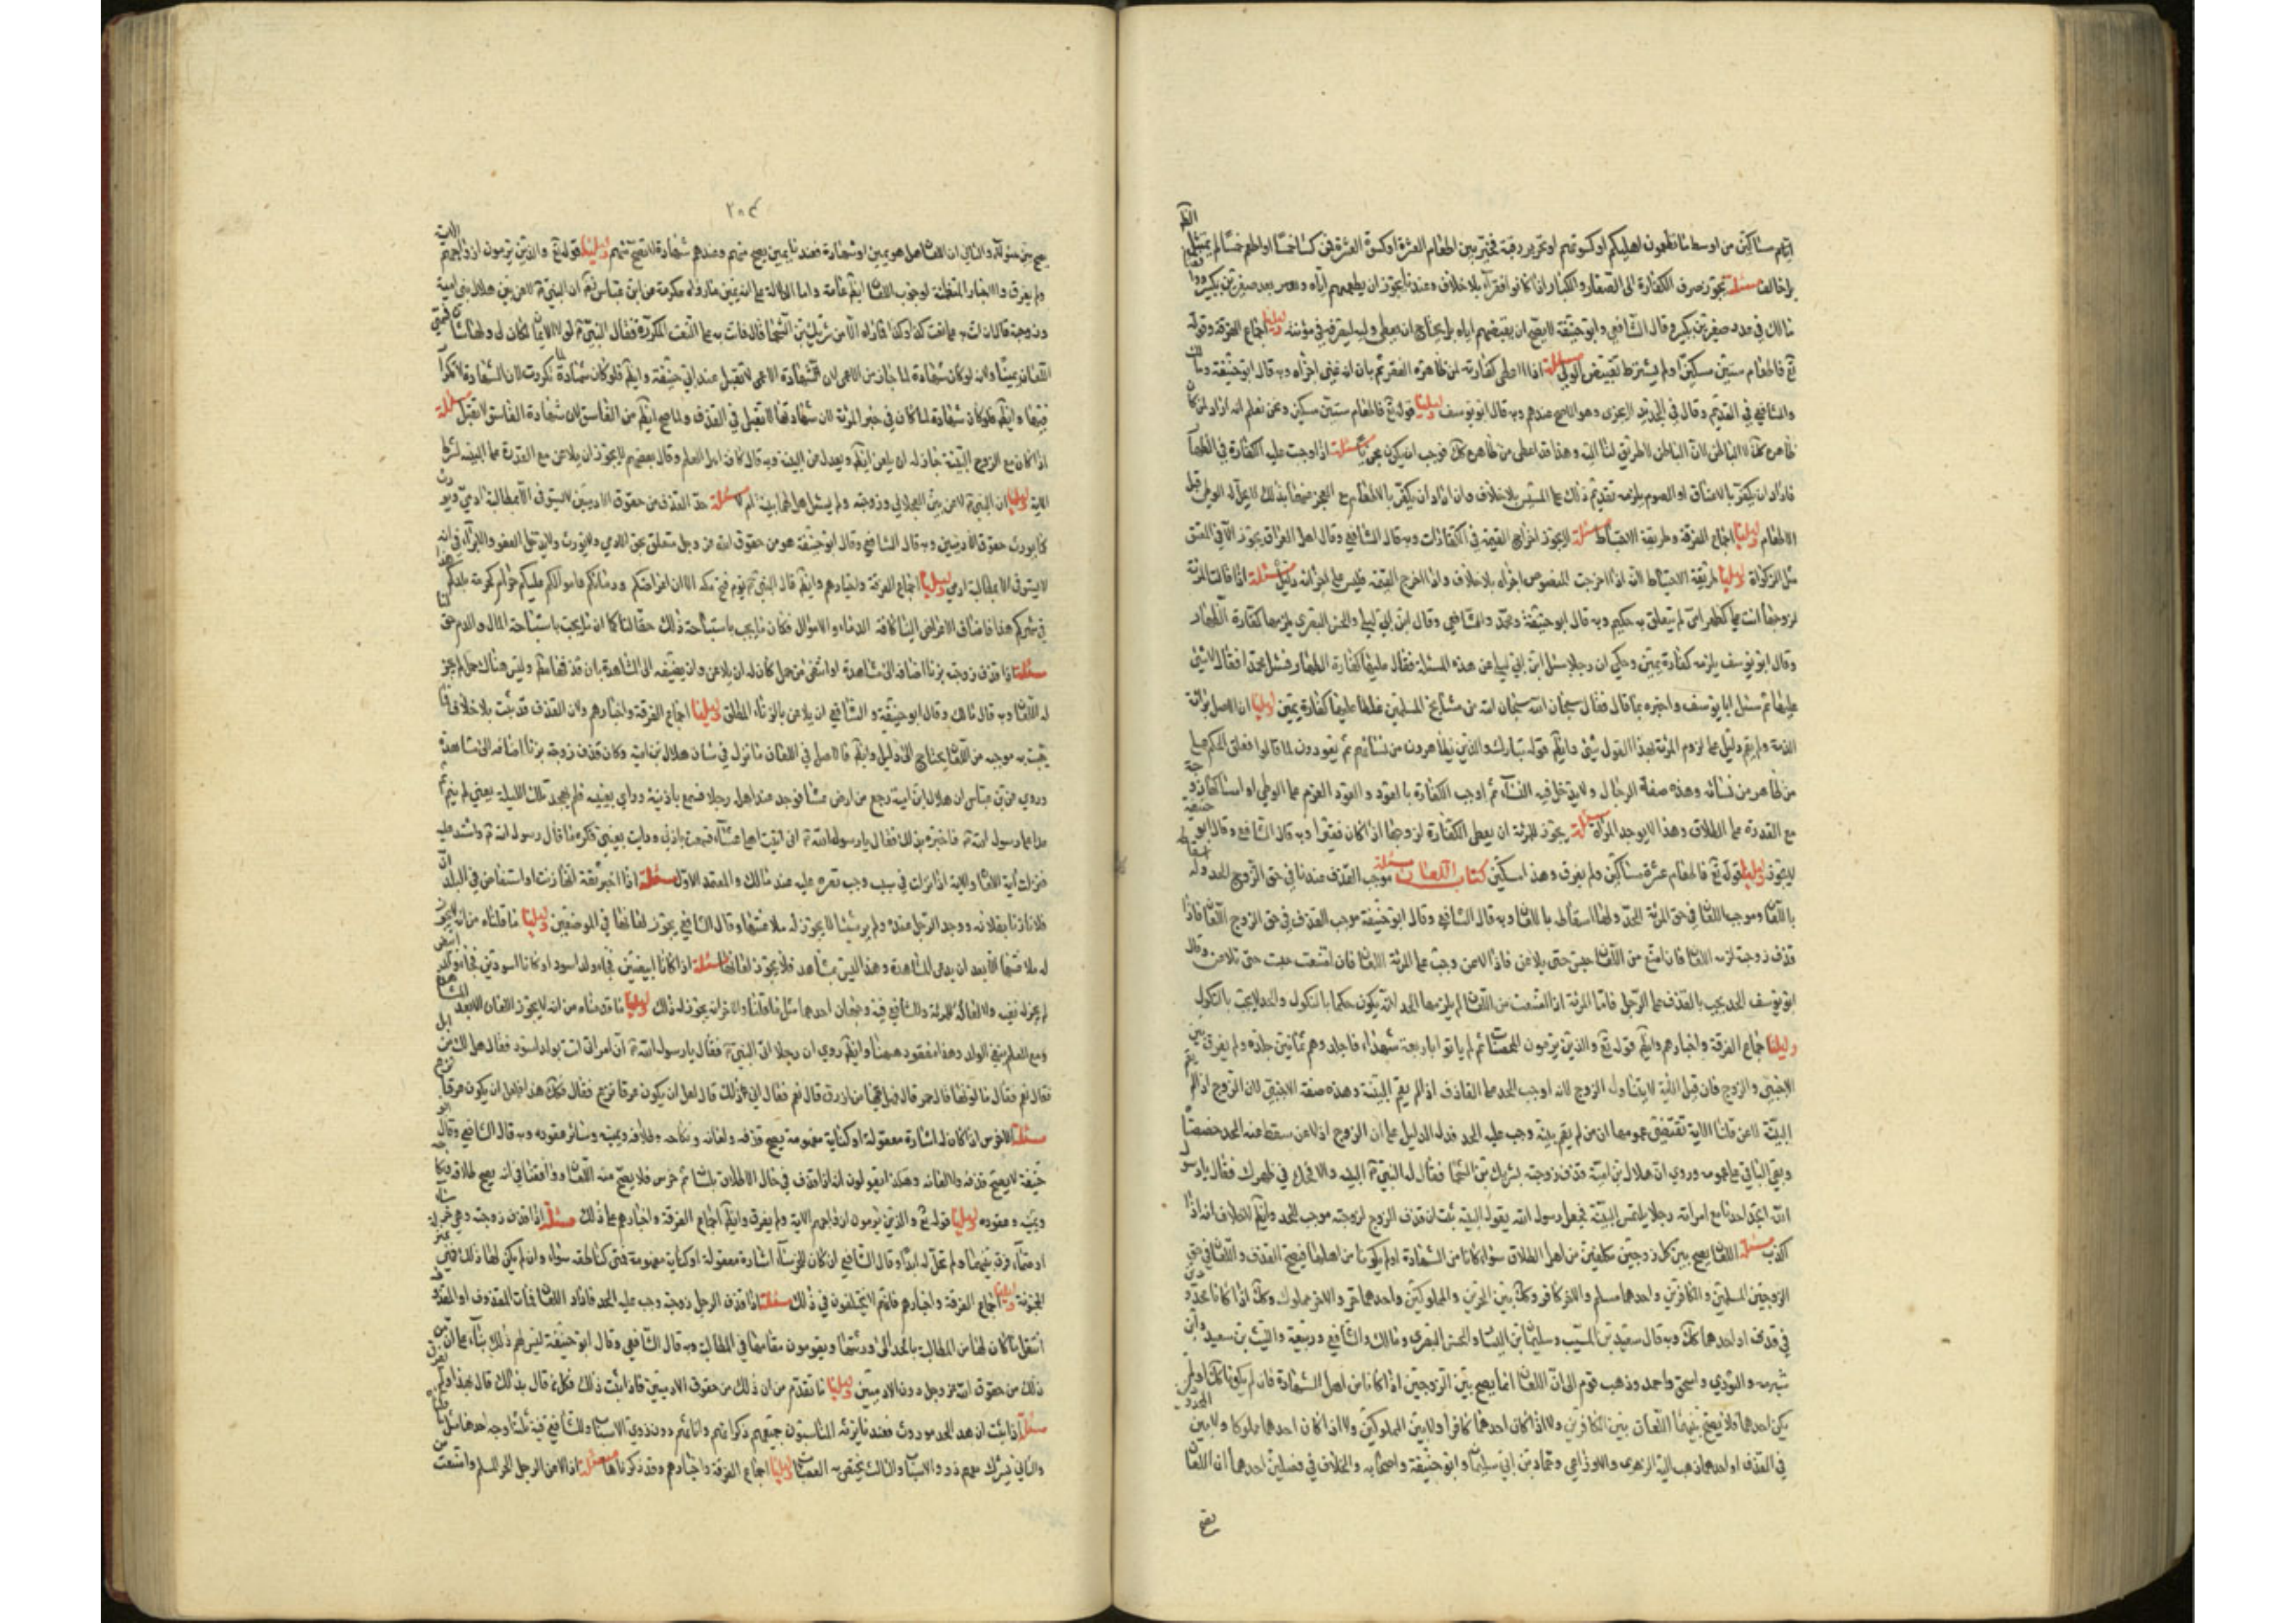 ايام مساكين من اوسط ما تطعمون اهليكم او كسوتهم او تحرير رقبة فخير بين اطعام العشرة او كسوة العشرة فمن كسا خمسا او اطعم خمسا لم يمتثل الظاهر
بل خالف مسئلة يجوز صرف الكفارة الى الصغار والكبار اذا كانوا فقراء بلا خلاف وعندنا يجوز ان يطعمهم اياه ويعد صغيرين بكبير ووافقنا
مالك في عدد صغيرين بكبير وقال الشافعي وابو حنيفة لا يصح ان يقبضهم اياه بل يحتاج ان يعطي وليه ليصرفه في مؤنته دليلنا اجماع الفرقة وقوله
تع فاطعام ستين مسكينا ولم يشترط تقبيض الولي مسئلة اذا اعطى كفارته لمن ظاهره الفقر ثم بان انه غني اجزأه وبه قال ابو حنيفة
والشافعي في القديم وقال في الجديد لا يجزى وهو الاصح عندهم وبه قال ابو يوسف دليلنا قوله تع فاطعام ستين مسكينا ونحن نعلم انه اراد من كان
ظاهره كذلك لا الباطن لان الباطن لا طريق لنا اليه وهذا قد اعطى من ظاهره كذلك فوجب ان يكون مجزيا مسئلة اذا وجبت عليه الكفارة في الظهار
فاراد ان يكفر بالاعتاق او الصوم يلزمه تقديم ذلك على المسيس بلا خلاف وان اراد ان يكفر بالاطعام مع العجز عنهما فكذلك لا يحل له الوطي قبل
الاطعام دليلنا اجماع الفرقة وطريقة الاحتياط مسئلة لا يجوز اخراج القيمة في الكفارات وبه قال الشافعي وقال اهل العراق يجوز الا في العتق
مثل الزكوة دليلنا طريقة الاحتياط لانه اذا اخرجت المنصوص اجزأه بلا خلاف واذا اخرج القيمة فليس على اجزائه دليل مسئلة اذا قالت المرئة
لزوجها انت علي كظهر امي لم يتعلق به حكم وبه قال ابو حنيفة ومحمد والشافعي وقال ابن ابي ليلى والحسن البصري يلزمها كفارة الظهار
وقال ابو يوسف يلزمه كفارة يمين وحكي ان رجلا سئل ابن ابي ليلى عن هذه المسئلة فقال عليها كفارة الظهار فسئل محمدا فقال لا شيء
عليها ثم سئل ابا يوسف واخبره بما قال فقال سبحان الله سبحان الله من مشايخ المسلمين غلطا عليها كفارة يمين دليلنا ان الاصل برائة
الذمة ولم يقم دليل على لزوم المرئة بهذا القول شيء وايضا قوله تبارك والذين يظاهرون من نسائهم ثم يعودون لما قالوا فعلق الحكم على
من ظاهر من نسائه وهذه صفة الرجال ولا يدخل فيه النساء ثم اوجب الكفارة بالعود والعود العزم على الوطي او امساكها زوجة
مع القدرة على الطلاق وهذا لا يوجد في المرأة مسئلة يجوز للمرئة ان يعطي الكفارة لزوجها اذا كان فقيرا وبه قال الشافعي وقال ابو حنيفة
لا يجوز دليلنا قوله تع فاطعام عشرة مساكين ولم يفرق وهذا مسكين كتاب اللعان مسئلة موجب القذف عندنا في حق الزوج الحد وله اسقاطه
باللعان وموجب اللعان في حق المرئة الحد ولها اسقاطه باللعان وبه قال الشافعي وقال ابو حنيفة موجب القذف في حق الزوج اللعان فاذا
قذف زوجته لزمه اللعان فان امتنع من اللعان حبس حتى يلاعن فاذا لاعن وجبت على المرئة اللعان فان امتنعت حبست حتى تلاعن وقال
ابو يوسف الحد يجب بالقذف على الرجل فاما المرئة اذا امتنعت من اللعان لم يلزمها الحد لانه يكون حكما بالنكول والحد لا يجب بالنكول
دليلنا اجماع الفرقة واخبارهم وايضا قوله تع والذين يرمون المحصنات ثم لم يأتوا باربعة شهداء فاجلدوهم ثمانين جلدة ولم يفرق بين
الاجنبي والزوج فان قيل الاية لا يتناول الزوج لانه اوجب الحد على القاذف اذا لم يقم البينة وهذه صفة الاجنبي لان الزوج اذا لم يقم
البينة لاعن قلنا الاية تقتضي عمومها ان من لم يقم بينة وجب عليه الحد فدل الدليل على ان الزوج اذا لاعن سقط عنه الحد خصصناه
وبقي الباقي على عمومه وروي ان هلال بن امية قذف زوجته بشريك بن السحما فقال له النبي البينة والا فحد في ظهرك فقال يا رسول
الله ايجد احدنا مع امراته رجلا يلتمس البينة فجعل رسول الله يقول البينة فثبت ان قذف الزوج لزوجته موجب للحد وايضا لا خلاف انه اذا
اكذب مسئلة اللعان يصح بين كل زوجين مكلفين من اهل الطلاق سواء كانا من الشهادة او لم يكونا من اهلها فيصح القذف واللعان في حق
الزوجين المسلمين والكافرين واحدهما مسلم والاخر كافر وكذلك بين الحرين والمملوكين واحدهما حر والاخر مملوك وكذلك اذا كانا محدودين
في قذف او احدهما كذلك وبه قال سعيد بن المسيب وسليمان بن اليسار والحسن البصري ومالك والشافعي وربيعة والليث بن سعيد وابن
شبرمه والثوري واسحق واحمد وذهب قوم الى ان اللعان انما يصح بين الزوجين اذا كانا من اهل الشهادة فان لم يكونا كذلك او لم
يكن احدهما فلا يصح بينهما اللعان بين الكافرين ولا اذا كان احدهما كافرا ولا بين المملوكين ولا اذا كان احدهما مملوكا ولا بين المحدودين
في القذف او احدهما ذهب اليه الزهري والاوزاعي وحماد بن ابي سليمان وابو حنيفة واصحابه والخلاف في فصلين احدهما ان اللعان
يصح
٢٠٤
يصح بين هؤلاء والثاني ان اللعان هل هو يمين او شهادة فعندنا يمين يصح منهم وعندهم شهادة لا تصح منهم دليلنا قوله تع والذين يرمون ازواجهم الاية
ولم يفرق والاخبار المتضمنة لوجوب اللعان ايضا عامة واما الدلالة على انه يمين ما رواه عكرمة عن ابن عباس ان النبي لاعن بين هلال بن امية
وزوجته قال ان اتت به على نعت كذا وكذا فما اراه الا من شريك بن السحما قال فاتت به على النعت المكروه فقال النبي لولا الايمان لكان لي ولها شان فسمى
اللعان يمينا ولانه لو كان شهادة لما جاز من الاعمى لان شهادة الاعمى لا تقبل عند ابي حنيفة وايضا فلو كان شهادة لما تكررت لان الشهادة لا تكرار
فيها وايضا فلو كان شهادة لما كان في حيز المرئة لان شهادتها لا تقبل في القذف ولما صح ايضا من الفاسق لان شهادة الفاسق لا تقبل مسئلة
اذا كان مع الزوج البينة جاز له ان يلعن ايضا ويعدل عن البينة وبه قال كافة اهل العلم وقال بعضهم لا يجوز ان يلاعن مع القدرة على البينة لشرط
الاية دليلنا ان النبي لاعن بين العجلاني وزوجته ولم يسئل هل لهما بينة ام لا مسئلة حد القذف من حقوق الادميين لا يستوفى الا بمطالبة ادمي ويورث
كما يورث حقوق الادميين وبه قال الشافعي وقال ابو حنيفة هو من حقوق الله عز وجل متعلق بحق الادمي ولا يورث ولا يدخله العفو والابراء في انه
لا يستوفى الا بمطالبة ادمي دليلنا اجماع الفرقة واخبارهم وايضا قال النبي يوم فتح مكه الا ان اعراضكم ودماءكم واموالكم عليكم حرام كحرمة بلدكم هذا
في شهركم هذا فاضاف الاعراض الينا كاضافة الدماء والاموال فكان ما يجب باستباحة ذلك حقا لنا كما ان ما يجب باستباحة المال والدم حق لنا
مسئلة اذا قذف زوجته بزنا اضافه الى مشاهدة او انتفى من حمل كان له ان يلاعن وان لم يضفه الى المشاهدة بان قذفها مطلقا وليس هناك حمل لم يجز
له اللعان وبه قال مالك وقال ابو حنيفة والشافعي ان يلاعن بالزناء المطلق دليلنا اجماع الفرقة واخبارهم ولان القذف قد ثبت بلا خلاف فما
يثبت به موجبه من اللعان يحتاج الى دليل وايضا فالاصل في اللعان ما نزل في شان هلال بن امية وكان قذف زوجته بزنا اضافه الى مشاهدة
وروي عن ابن عباس ان هلال ابن امية رجع من ارض عشاء فوجد عند اهله رجلا فسمع باذنيه وراى بعينيه فلم يهجه تلك الليلة يعني لم ينم ثم
غدا على رسول الله فاخبره بذلك فقال يا رسول الله اني اتيت اهلي عشاء فسمعت باذني ورايت بعيني فكره ما قال رسول الله واشتد عليه
فنزلت اية اللعان والاية اذا نزلت في سبب وجب قصره عليه عند مالك والمعتمد الاول مسئلة اذا اخبر ثقة انها زنت او استفاض في البلد ان
فلانا زنا بفلانه ووجد الرجل عندها ولم ير شيئا لا يجوز له ملاعنتها وقال الشافعي يجوز لعانها في الموضعين دليلنا ما قلناه من انه لا يجوز
له ملاعنتها الا بعد ان يدعى المشاهدة وهذا ليس بشاهد فلا يجوز لعانها مسئلة اذا كانا ابيضين فجاء ولد اسود او كانا اسودين فجاء ولد ابيض
لم يجز له نفيه ولا لعان المرئة وللشافعي فيه وجهان احدهما مثل ما قلنا والاخر انه يجوز له ذلك دليلنا ما قدمناه من انه لا يجوز اللعان الا بعد المشاهدة
ومع العلم بنفي الولد وهذا مفقود ههنا وايضا روي ان رجلا اتى النبي فقال يا رسول الله ان امراتي اتت بولد اسود فقال هل لك من ابل
فقال نعم فقال ما لونها قال حمر قال فهل فيها من اورق قال نعم فقال انى ذلك قال لعل ان يكون عرقا نزع فقال فكذلك هذا لعل ان يكون عرقا نزعه
مسئلة الاخرس اذا كان له اشارة معقولة او كناية مفهومة يصح قذفه ولعانه ونكاحه وطلاقه ويمينه وسائر عقوده وبه قال الشافعي وقال ابو
حنيفة لا يصح قذفه ولا لعانه وهكذا يقولون انه اذا قذف في حال الاطلاق بلسانه ثم خرس فلا يصح منه اللعان ووافقنا في انه يصح طلاقه ونكاحه
ويمينه وعقوده دليلنا قوله تع والذين يرمون ازواجهم الاية ولم يفرق وايضا اجماع الفرقة واخبارهم على ذلك مسئلة اذا قذف زوجته وهي خرساء
او صماء فرق بينهما ولم تحل له ابدا وقال الشافعي ان كان للخرساء اشارة معقولة او كناية مفهومة فهي كالناطقة سواء وان لم يكن لها ذلك فهي بمنزلة
المجنونة دليلنا اجماع الفرقة واخبارهم فانهم لا يختلفون في ذلك مسئلة اذا قذف الرجل زوجته وجب عليه الحد فاراد اللعان فمات المقذوف او المقذوفة
انتقل ما كان لها من المطالبة بالحد الى ورثتها ويقومون مقامها في المطالبة وبه قال الشافعي وقال ابو حنيفة ليس لهم ذلك بناء على ان
ذلك من حقوق الله عز وجل دون الادميين دليلنا ما تقدم من ان ذلك من حقوق الادميين فاذا ثبت ذلك فكل من قال بذلك قال بهذا ولم يفرق
مسئلة اذا ثبت ان هذا الحد موروث فعندنا يرثه المناسبون جميعهم ذكرانهم واناثهم دون ذوي الاسباب وللشافعي فيه ثلثة اوجه احدها مثل ما قلناه
والثاني يشرك معهم ذوو الاسباب والثالث يختص به العصبات دليلنا اجماع الفرقة واخبارهم وقد ذكرناها مسئلة اذا لاعن الرجل الحر المسلم وامتنعت من